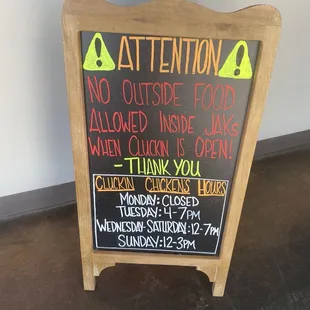 ATTENTION
NO OUTSIDE FOOD
ALLOWED INSIDE JAK'S
WHEN CLUCKIN IS OPEN!
-THANK YOU
CLUCKIN CHICKENS HOURS
MONDAY: CLOSED
TUESDAY: 4-7PM
WEDNESDAY-SATURDAY: 12-7PM
SUNDAY: 12-3PM